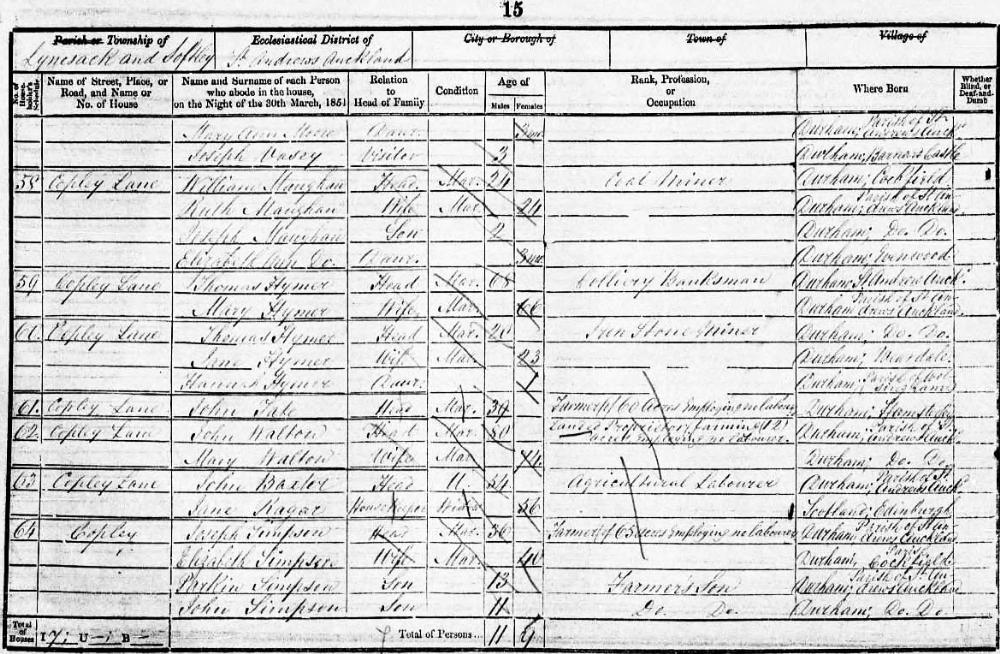 15
Parish or Township of Ecclesiastical District of City or Borough of Town of Village of
Lynesack and Softley St. Andrews Auckland
No. of House-holder's Schedule Name of Street, Place, or Road, and Name or No. of House Name and Surname of each Person who abode in the house, on the Night of the 30th March, 1851 Relation to Head of Family Condition Age of Males Females Rank, Profession, or Occupation Where Born Whether Blind, or Deaf-and-Dumb
Mary Ann Moore Daur. Durham; Parish of St. Andrews Auckd.
Joseph Vasey Visitor 3 Durham; Barnard Castle
58 Copley Lane William Maughan Head Mar. 24 Coal Miner Durham; Cockfield
Ruth Maughan Wife Mar. 24 Durham; Parish of St. Andrews Auckland
Joseph Maughan Son 2 Durham; Do. Do.
Elizabeth Ann Do. Daur. Durham; Evenwood
59 Copley Lane Thomas Hymer Head Mar. 68 Colliery Banksman Durham; St. Andrews Auckd.
Mary Hymer Wife Mar. 66 Durham Parish of St. Andrews Auckland
60. Copley Lane Thomas Hymer Head Mar. Iron Stone Miner Durham; Do. Do.
Jane Hymer Wife Mar. 23 Durham; Weardale
Hannah Hymer Daur. 1 Durham; Parish of
61. Copley Lane John Tate Head Mar. 39 Farmer of 60 acres Employing no labourer Durham;
62. Copley Lane John Walton Head Mar. 50 Landed Proprietor, farming 121 acres Employing no labourer. Durham; Parish of St. Andrews Auckd.
Mary Walton Wife Mar. 44 Durham; Do. Do.
63 Copley Lane John Baxter Head U. 54 Agricultural Labourer Durham; Parish of St. Andrews Auckd.
Jane House Keeper Widow 56 Scotland; Edinburgh
64 Copley Joseph Simpson Head Mar. 36 Farmer of 65 acres Employing no labourer Durham Parish of St. Andrews Auckland
Elizabeth Simpson Wife Mar. 40 Durham; Parish Cockfield
Parkin Simpson Son 13 Farmer's Son Durham; Parish of St. Andrews Auckland
John Simpson Son 11 Do. Do. Durham; Do. Do.
Total of Houses I 7; U —; B — Total of Persons... 11 9